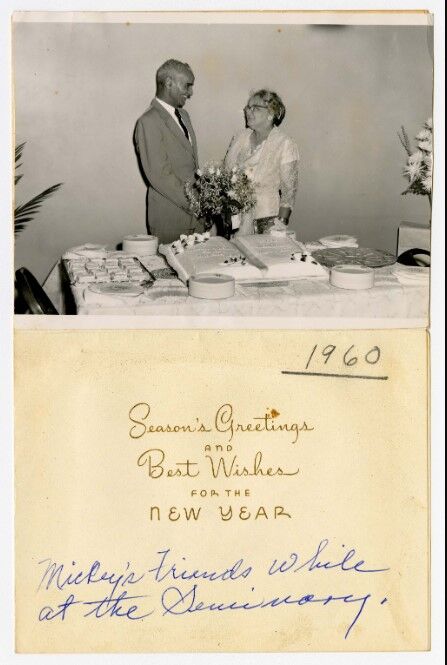 1960
Season's Greetings
AND
Best Wishes
FOR THE
NEW YEAR
Mickey's Friends While
at the Seminary.